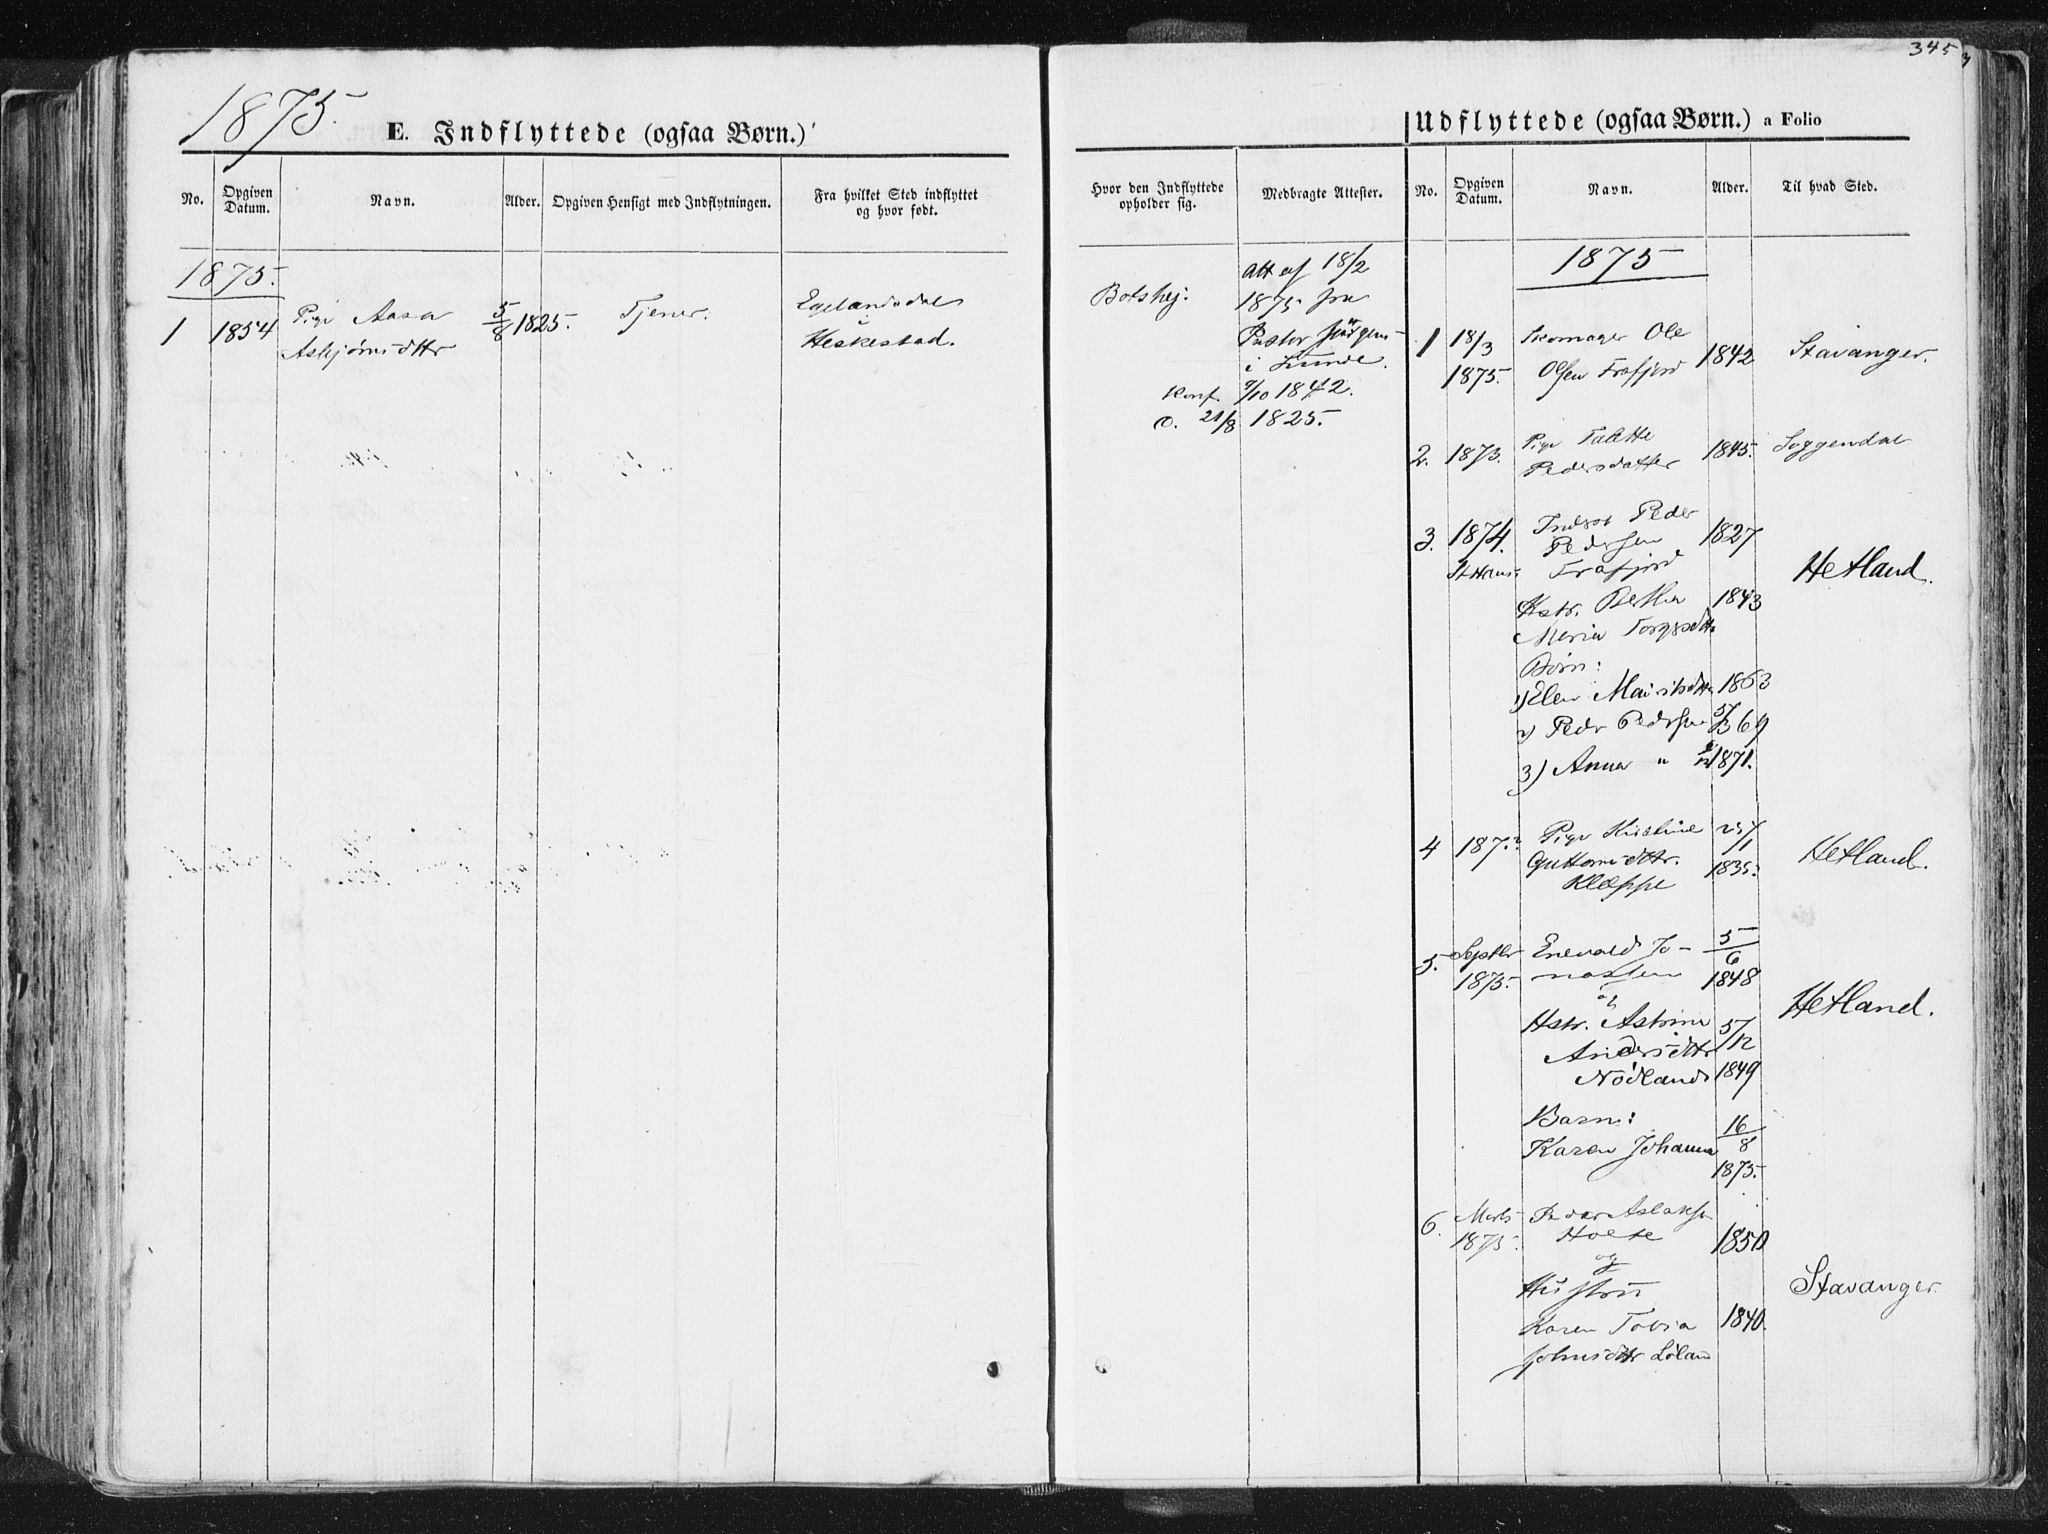 345
1875.
E. Indflyttede (ogsaa Børn.)
No.
Opgiven Datum.
Navn.
Alder.
Opgiven Hensigt med Indflytningen.
Fra hvilket Sted indflyttet og hvor født.
1875.
1 1854 Pige Aasa 5/8 1825. Tjener. Egelandsdal
Asbjørnsdttr Heskestad.
Udflyttede (ogsaa Børn.) a Folio
Hvor den Indflyttede opholder sig.
Medbragte Attester.
No.
Opgiven Datum.
Navn.
Alder.
Til hvad Sted.
Att af 18/2
1875 fra
Pastor
i Lunde.
Konf. 9/10 1842.
1825.
1875
1 18/3 Skomager Ole
1875. Olsen Frafjord 1842 Stavanger.
2. 1873. Pige Talette
Pedersdatter 1845. Soggendal
3. 1874. Peder 1827
St Hans Pedersen
Frafjord Hetland.
Hstr. Bertha 1843
Maria
Børn:
1) Elen 1863
2) Peder Pedersen 69
3) Anna " 1871.
4 187 Pige Kristine
Guttormsdttr. 1835.
Kleppe Hetland.
5. Septbr Enevald Jo- 5/6
1875. nassen 1848
og Hetland.
Hstr. Astrine 5/12
Andersdttr
Nødland 1849
Barn: 16/8
Karen Johanna
1875.
6. Marts Peder Aslaksen
1875. Holte 1850
og
Hustru Stavanger
Karen Tobia 1840.
Johnsdttr Løland